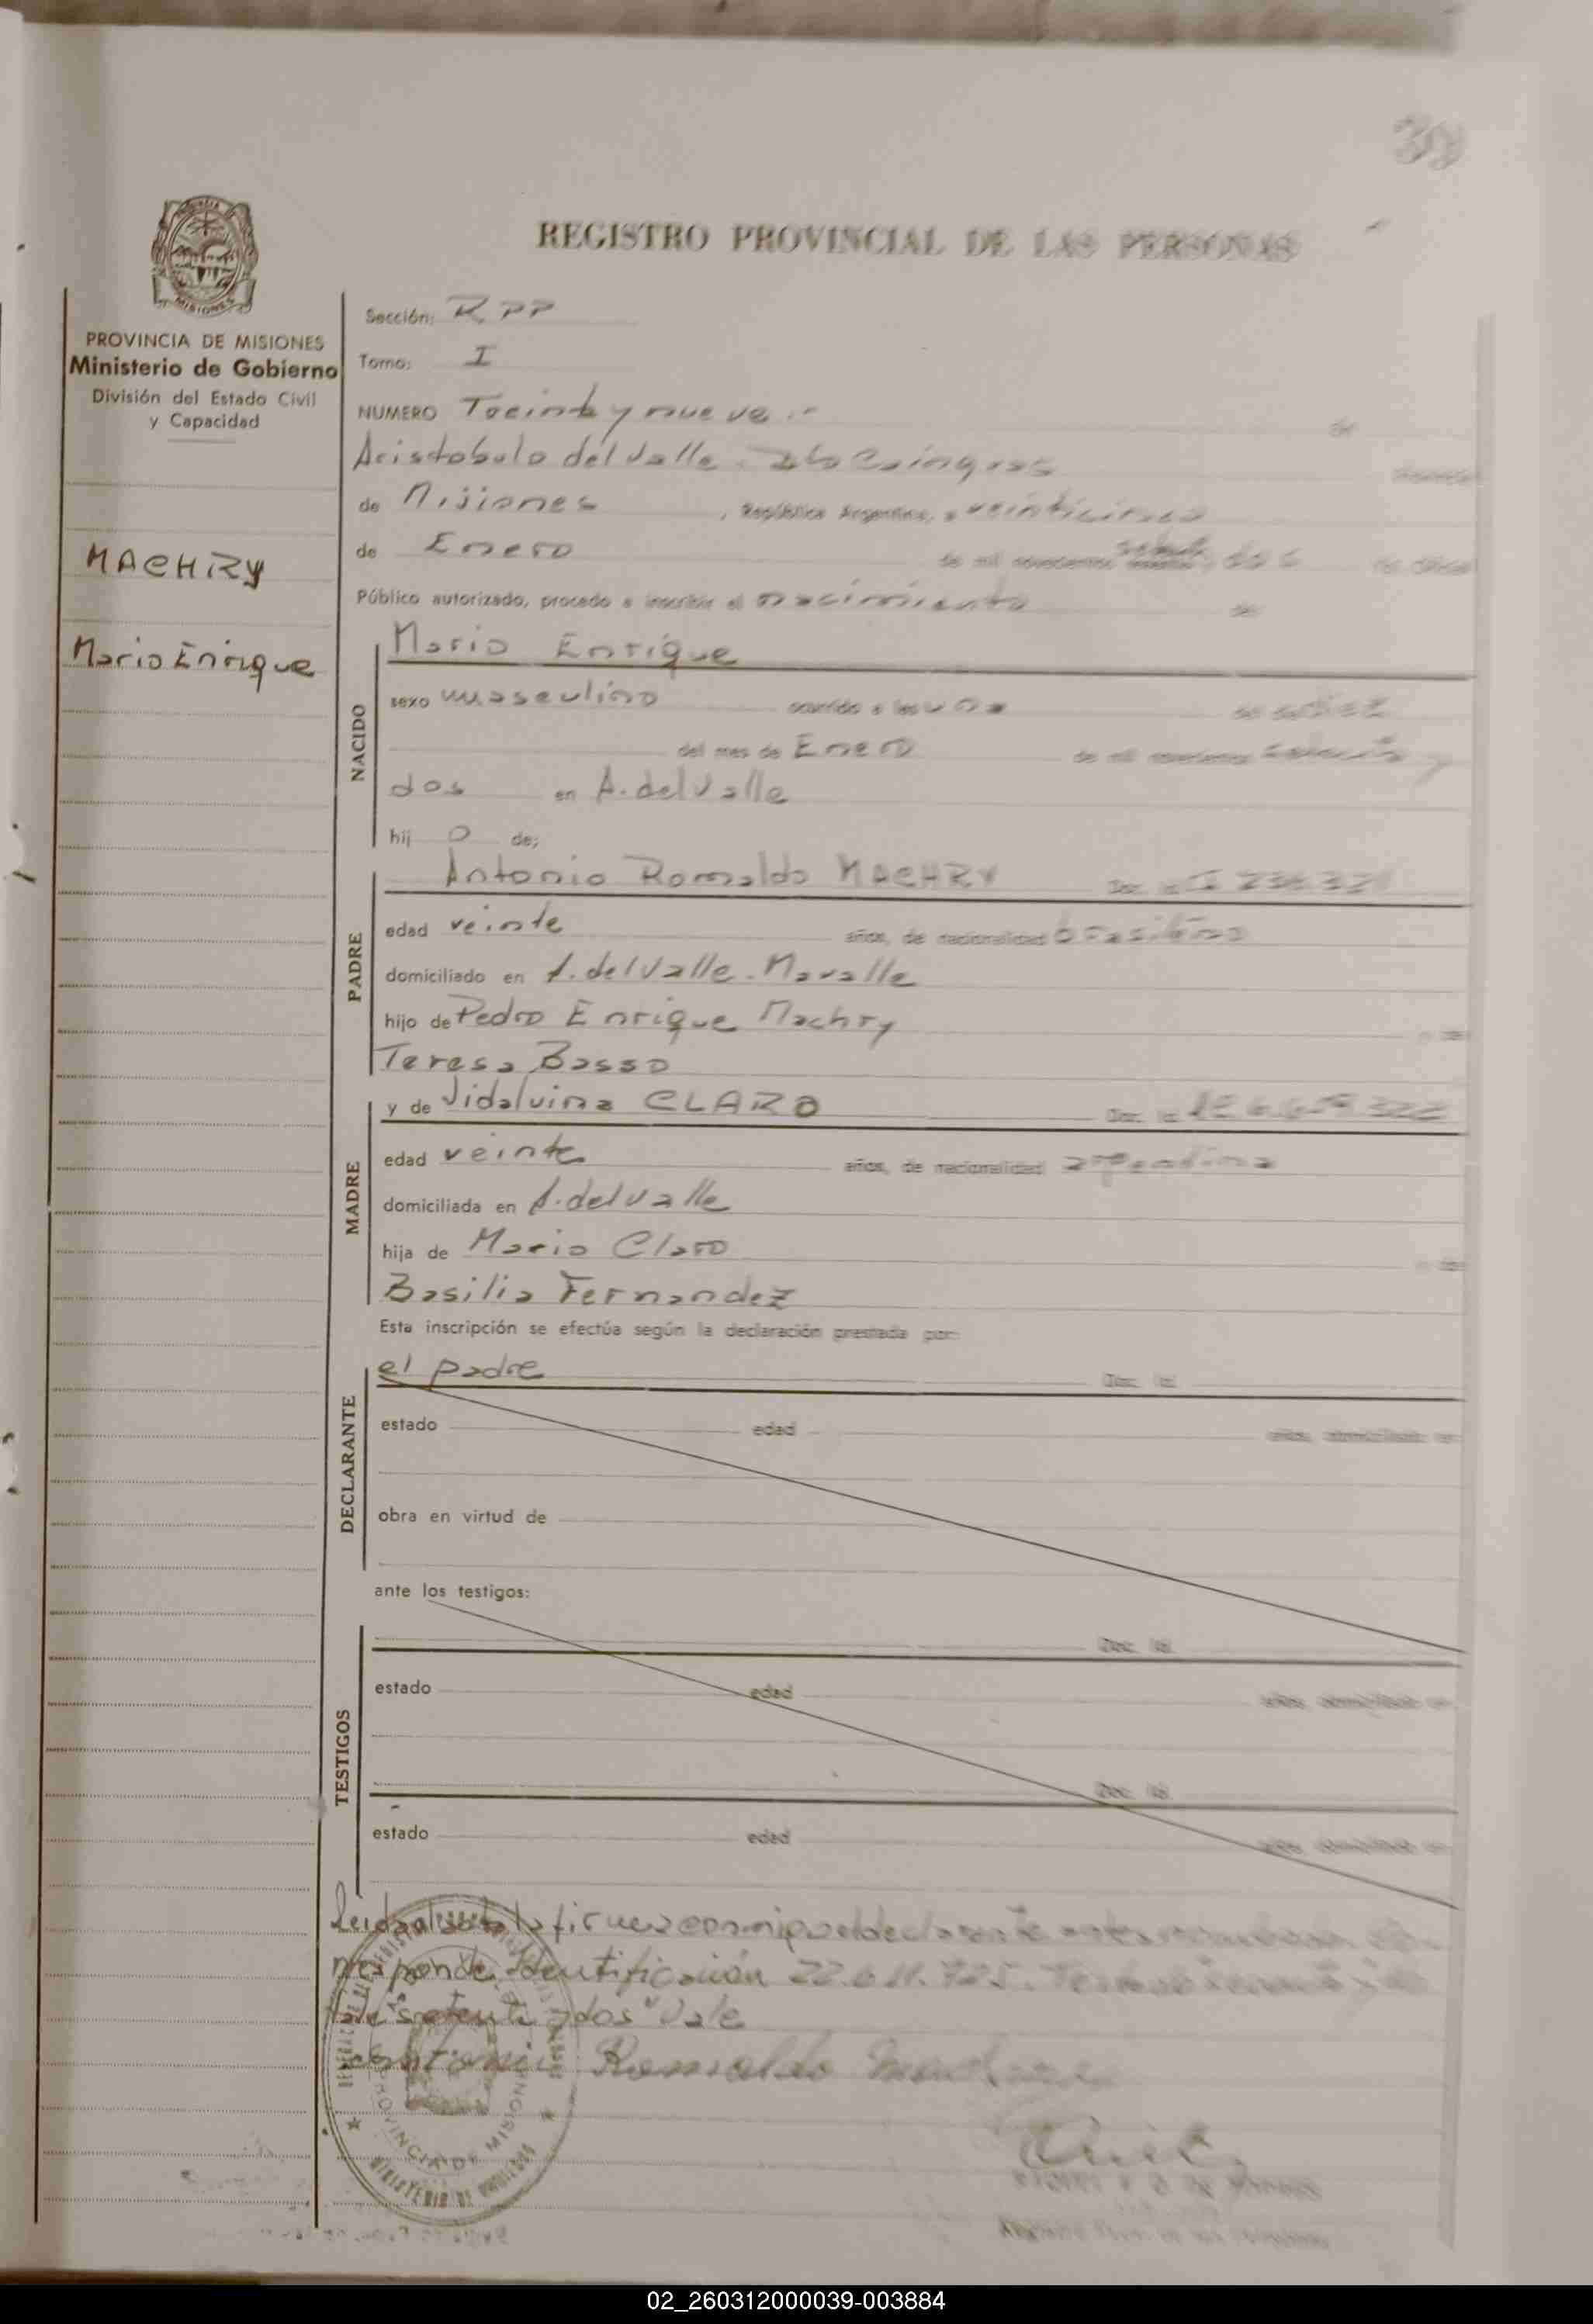 39
REGISTRO PROVINCIAL DE LAS PERSONAS
MISIONES
PROVINCIA DE MISIONES
Ministerio de Gobierno
División del Estado Civil
y Capacidad
MACHRY
Mario Enrique
Sección: RPP
Tomo: I
NUMERO Treinta y nueve .- En
Aristobulo del Valle. Dto Cainguas
de Misiones , República Argentina, a veinticinco
de Enero de mil novecientos setenta y dos
Público autorizado, procedo a inscribir el nacimiento de
NACIDO
Mario Enrique
sexo masculino ocurrido a las una
del mes de Enero de mil novecientos setenta y
dos en A. del Valle
hij o de;
PADRE
Antonio Romaldo MACHRY Doc. Id.
edad veinte años, de nacionalidad brasileño
domiciliado en A. del Valle.
hijo de Pedro Enrique Machry y de
Teresa Basso
MADRE
y de Vidalvina CLARO Doc. Id.
edad veinte años, de nacionalidad argentina
domiciliada en A. del Valle
hija de Mario Claro y de
Basilia Fernandez
Esta inscripción se efectúa según la declaración prestada por:
DECLARANTE
el padre Doc. Id.
estado edad años, domiciliado en
obra en virtud de
ante los testigos:
TESTIGOS
Doc. Id.
estado edad años, domiciliado en
Doc. Id.
estado edad años, domiciliado en
Leida el acta la firma conmigo el declarante
identificación
y dos" Vale
Antonio Romaldo
PROVINCIA DE MISIONES
02_260312000039-003884